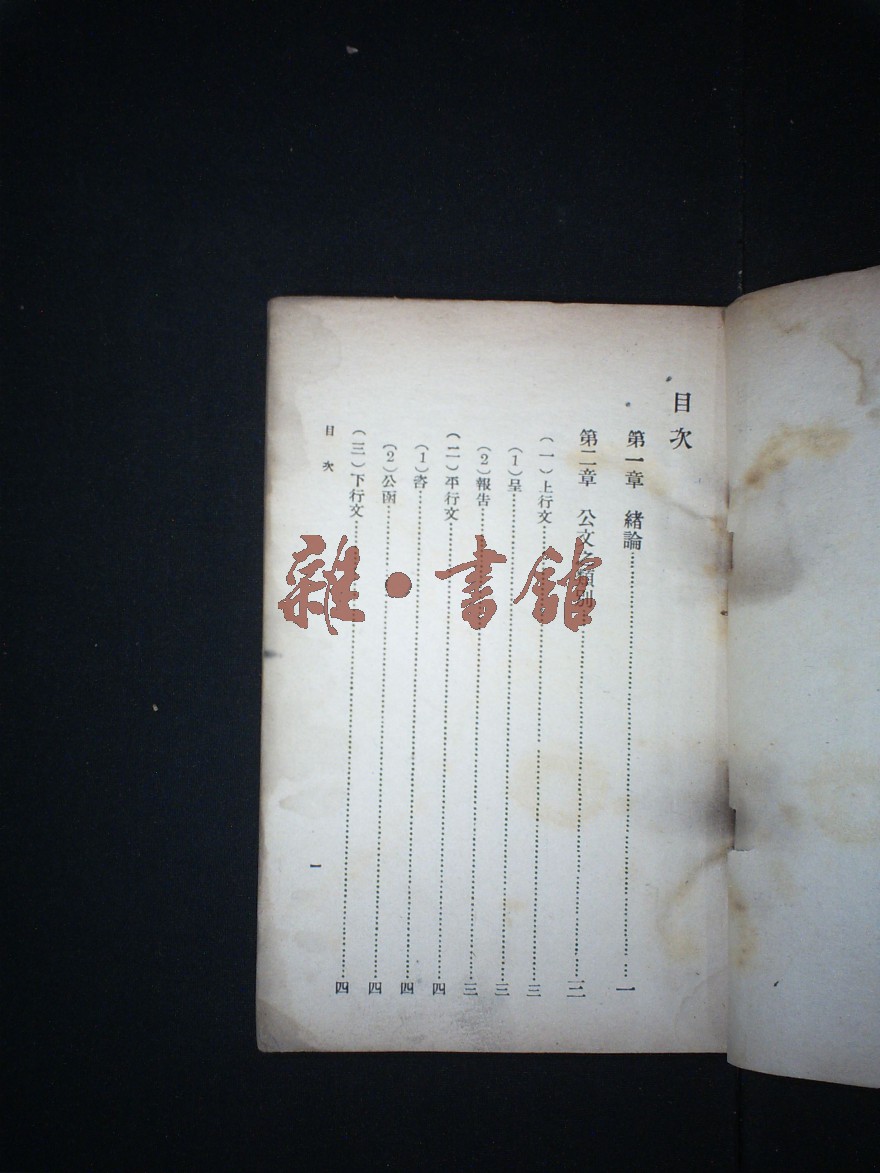 目次
第一章　緒論…………一
第二章　公文之類別…………三
(一)上行文…………三
(1)呈…………三
(2)報告…………三
(二)平行文…………四
(1)咨…………四
(2)公函…………四
(三)下行文…………四
目次
一
雜·書館